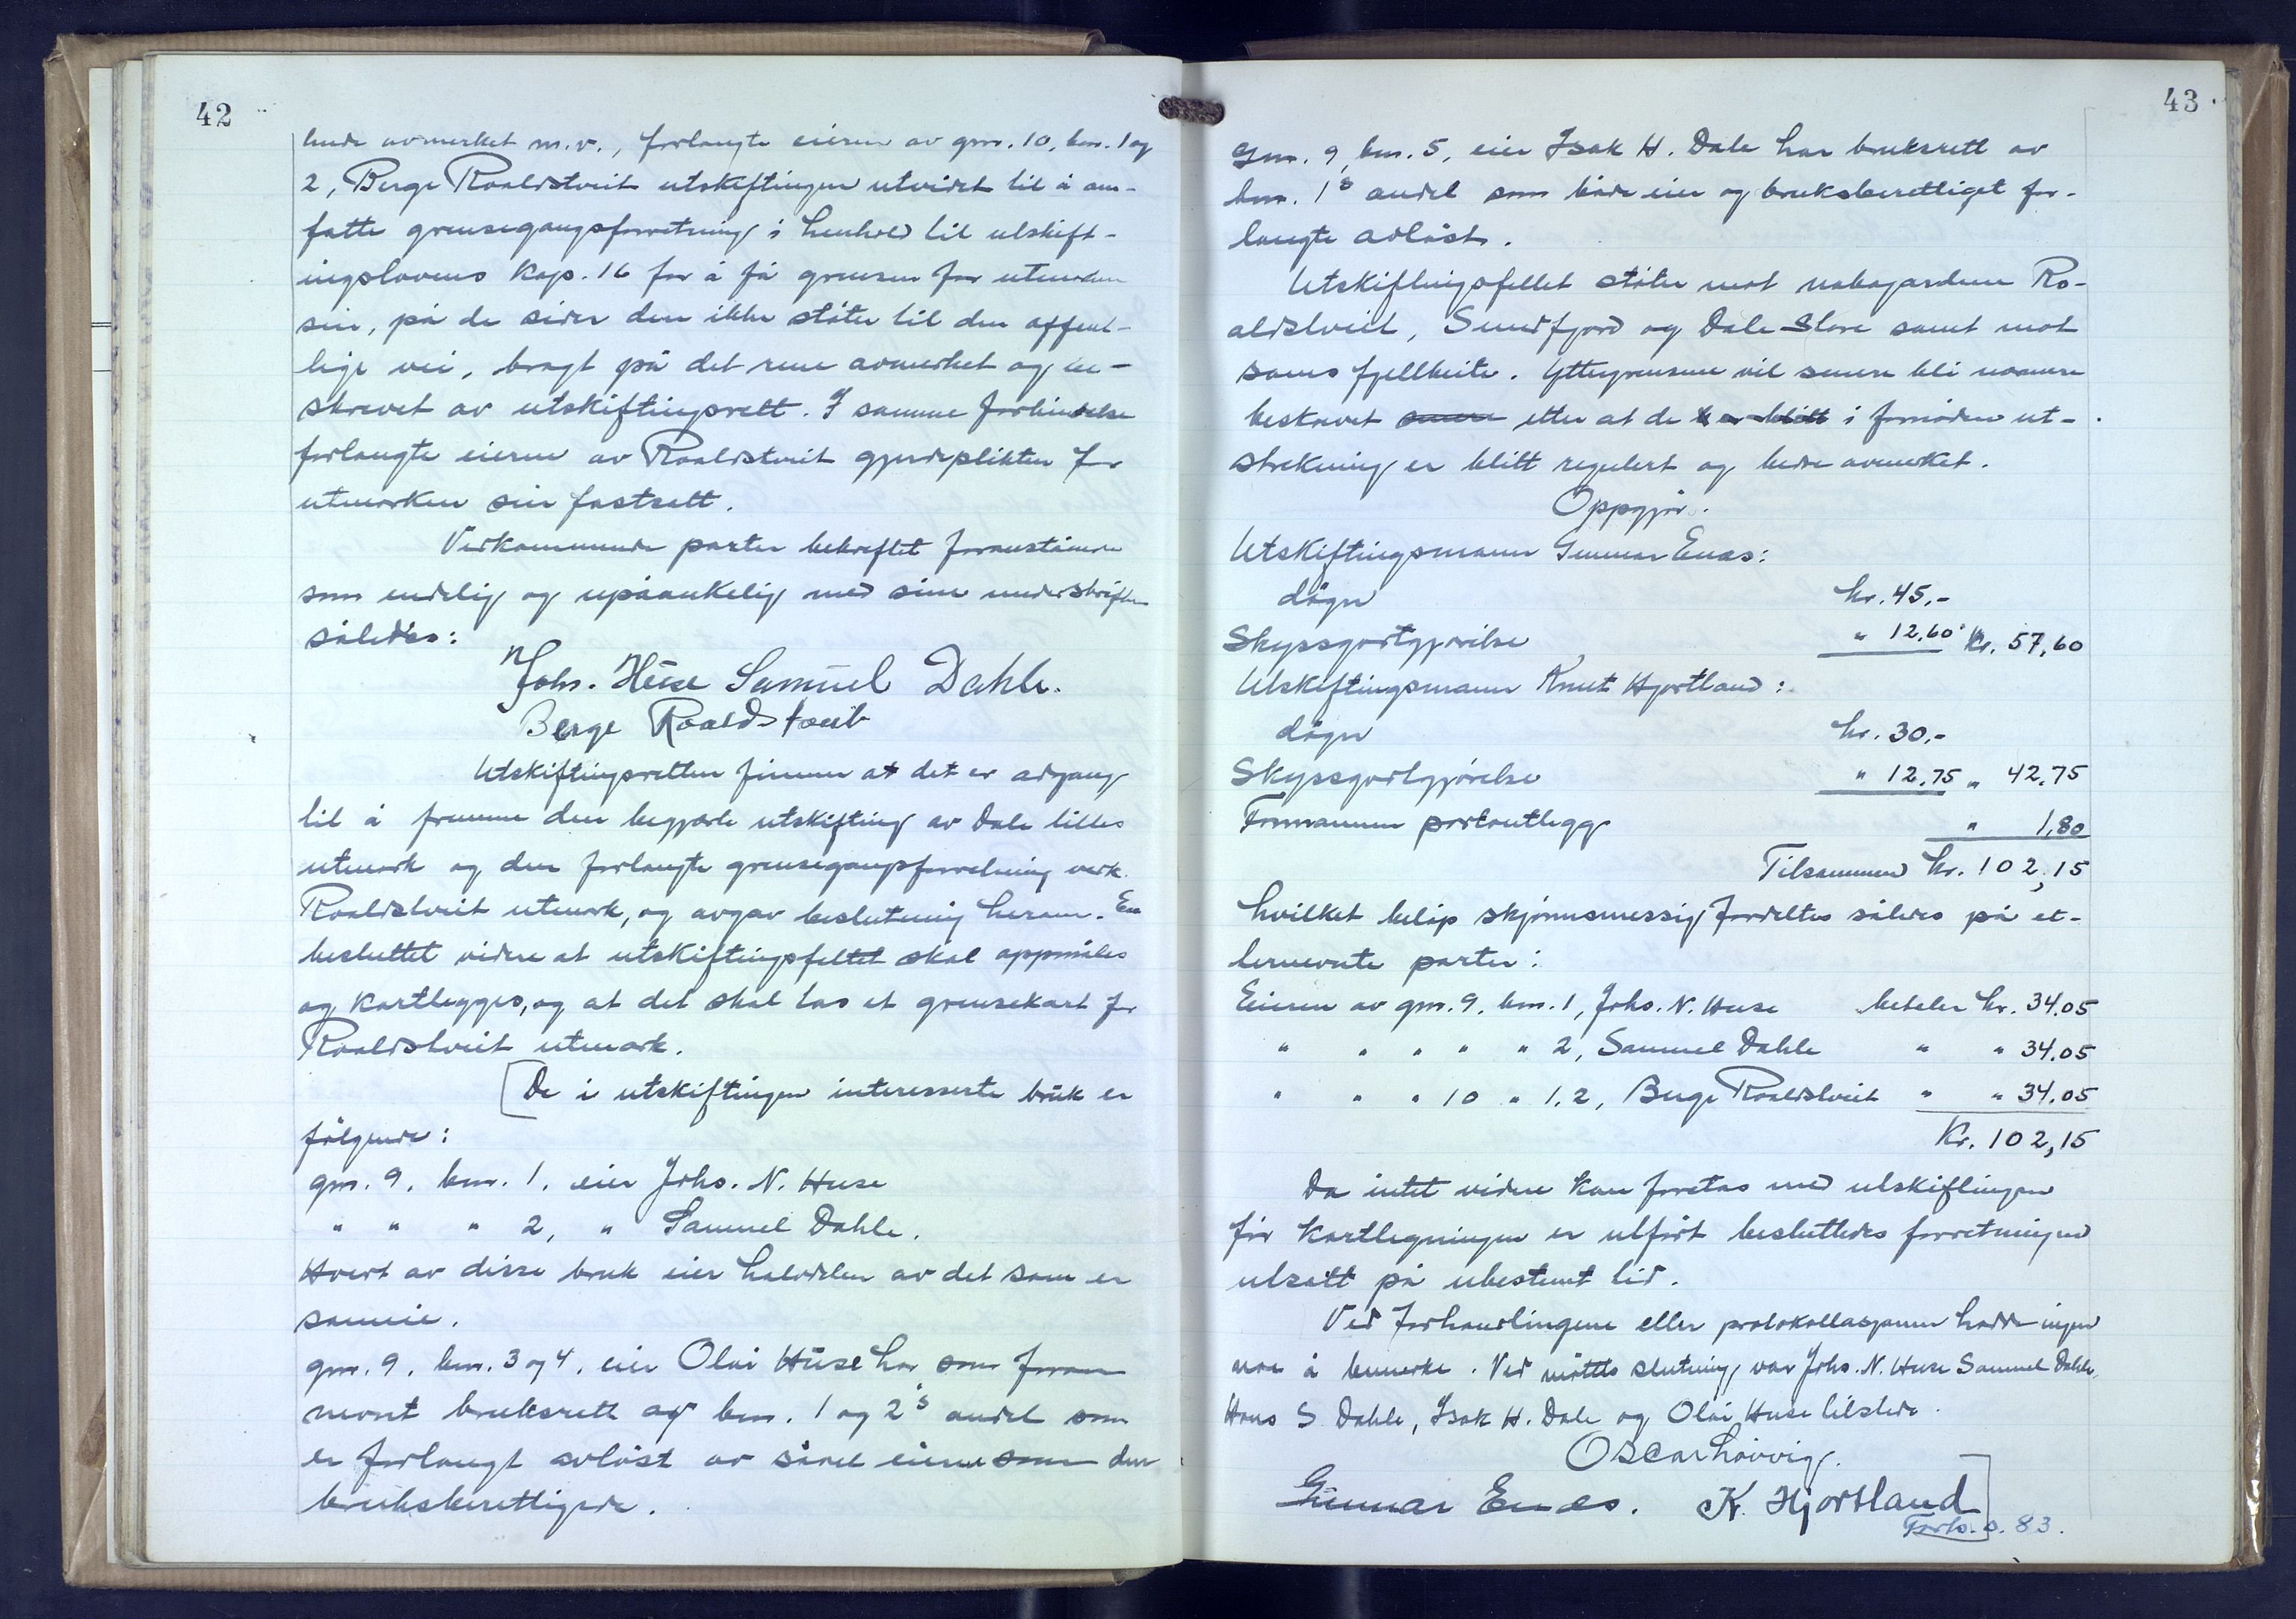 42
linde avmerket m.v., forlangte eieren av gnr. 10, bnr. 1 og
2, Berge Roaldstveit utskiftingen utvidet til å om-
fatte grensegangsforretning i henhold til utskift-
ingslovens Kap. 16 for å få grensen for utmarken
sin, på de sider den ikke støter til den offent-
lige vei, bragt på det rene avmerket og be-
skrevet av utskiftingsrett. I samme forbindelse
forlangte eieren av Roaldstveit gjerdeplikten for
utmarken sin fastsatt.
Vedkommende parter bekreftet foranstående
som endelig og upåankelig med sine underskrifter
således:
Johs. Huse Samuel Dahle.
Berge Roaldstveit
Utskiftingsretten finner at det er adgang
til å fremme den begjærte utskifting av Dale lilles
utmark og den forlangte grensegangsforretning vedk.
Roaldstveit utmark, og avgav beslutning herom. En
besluttet videre at utskiftingsfeltet skal oppmåles
og kartlegges, og at det skal tas et grensekart for
Roaldstveit utmark.
[De i utskiftingen interesserte bruk er
følgende:
gnr. 9. bnr. 1. eier Johs. N. Huse
" " " 2, " Samuel Dahle.
Hvert av disse bruk eier halvdelen av det som er
sameie.
gnr. 9. bnr. 3 og 4. eier Olai Huse har som foran
nevnt bruksrett av bnr. 1 og 2's andel som
er forlangt avløst av såvel eierne som den
bruksberettigede.
43
Gnr. 9 bnr. 5, eier Isak H. Dale har bruksrett av
bnr. 1's andel som både eier og bruksberettiget for-
langte avløst.
Utskiftingsfeltet støter mot nabogardene Ro-
aldstveit, Smedfjord og Dale Store samt mot
sams fjellbeite. Yttergrensene vil senere bli nærmere
beskrevet senere etter at de er blitt i fornøden ut-
strekning er blitt regulert og bedre avmerket.
Oppgjør.
Utskiftingsmann Gunnar Enæs:
døgn kr. 45,-
Skyssgodtgjørelse " 12,60 Kr. 57,60
Utskiftingsmann Knut Hjortland:
døgn kr. 30,-
Skyssgodtgjørelse " 12,75 " 42,75
Formannen portoutlegg " 1,80
Tilsammen kr. 102,15
hvilket beløp skjønnsmessig fordeltes således på et-
ternevnte parter:
Eieren av gnr. 9. bnr. 1, Johs. N. Huse betaler kr. 34.05
" " " " " 2, Samuel Dahle " " 34.05
" " " 10 " 1.2, Berge Roaldstveit " " 34.05
Kr. 102,15
Da intet videre kan foretas med utskiftingen
før kartlegningen er utført besluttedes forretningen
utsatt på ubestemt tid.
Ved forhandlingene eller protokollasjonen hadde ingen
noe å bemerke. Ved møttes slutning var Johs. N. Huse Samuel Dahle,
Hans S Dahle, Isak H. Dale og Olai Huse tilstede.
Oscar Løvvig.
Gunnar Enæs. K. Hjortland]
Forts. s. 83.